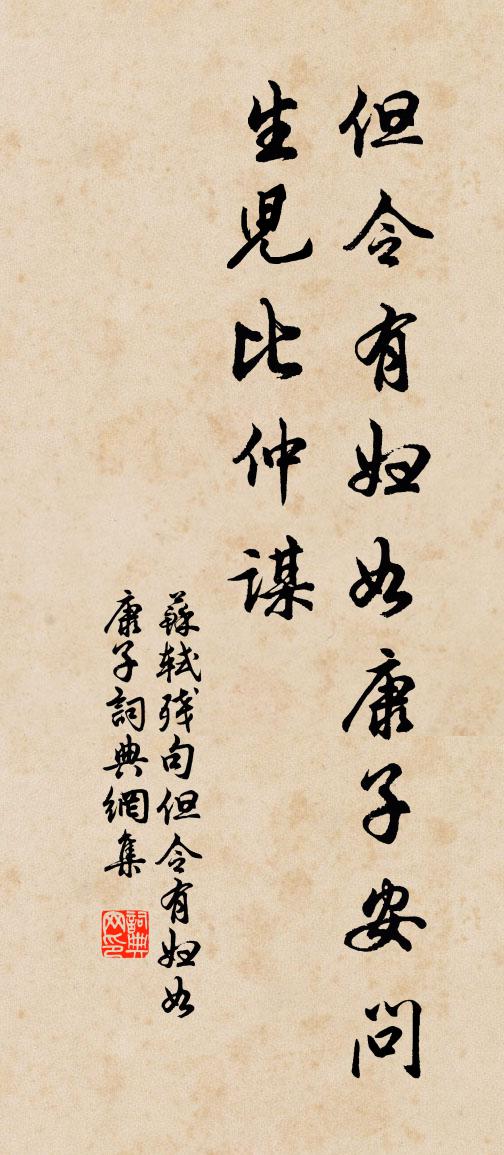 但令有妇如康子安问
生児比仲谋
蘇軾残句但令有妇如
康子詞典網集
詞典网印